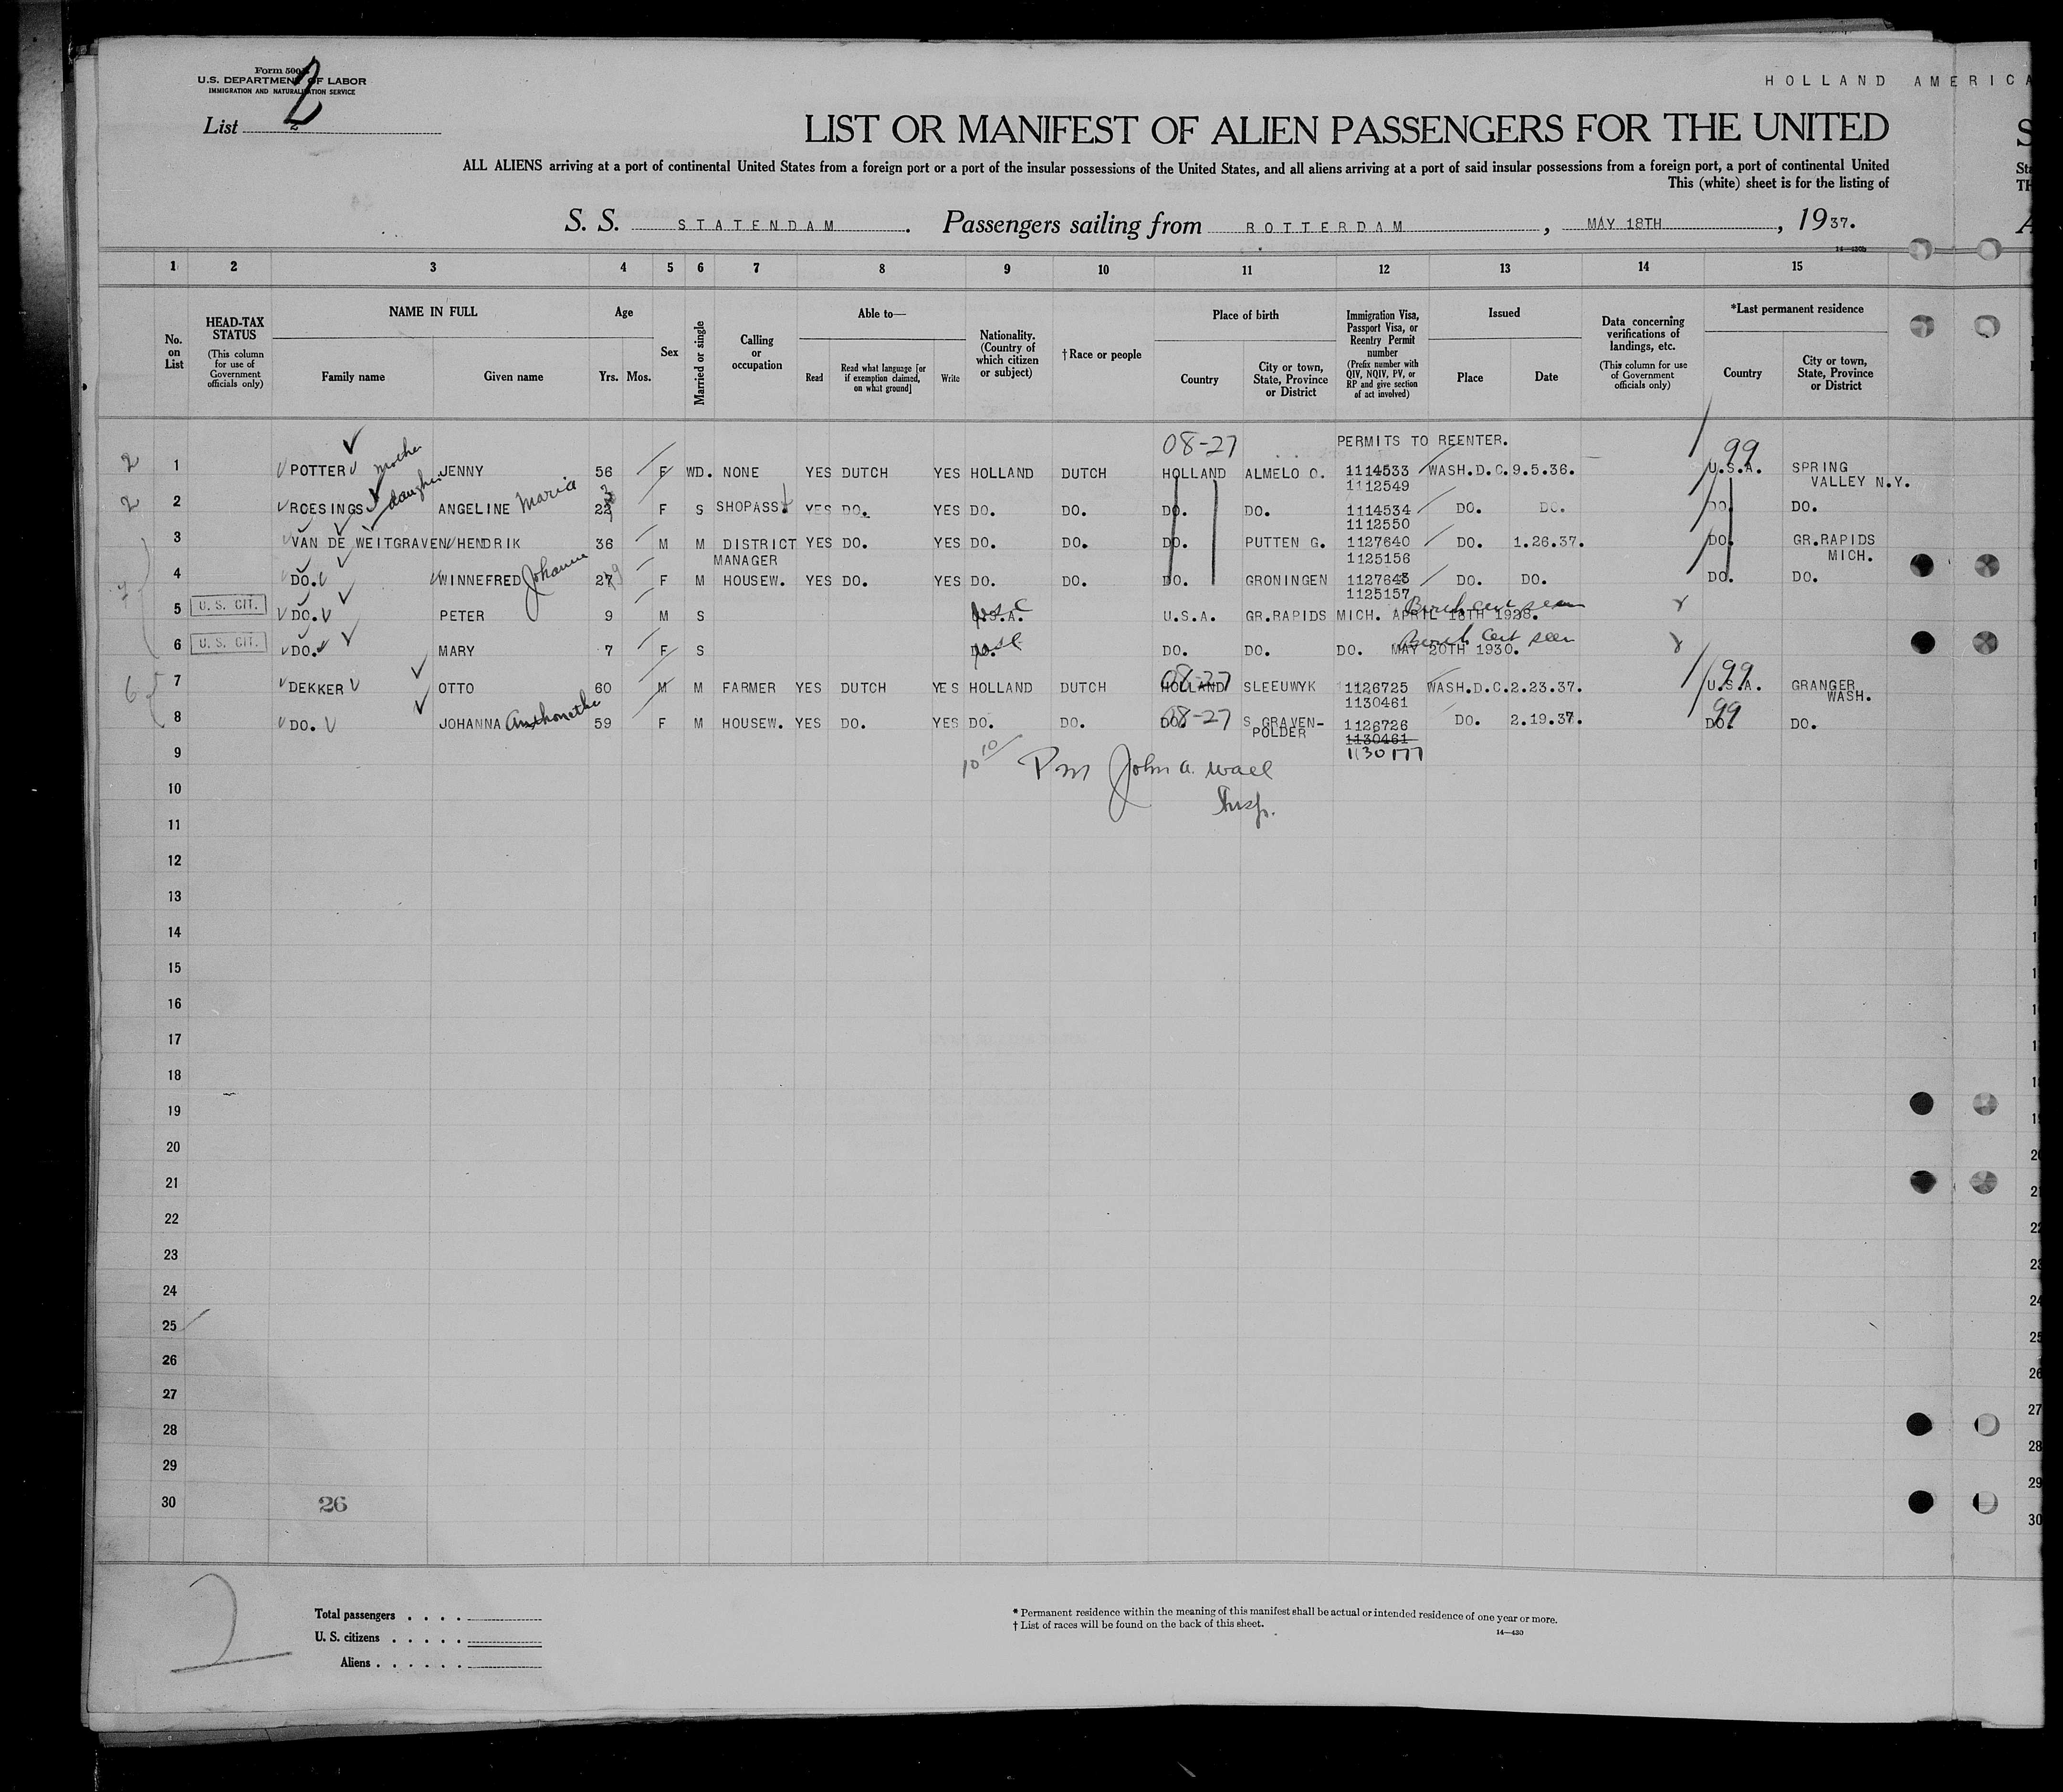 Form 500
U.S. DEPARTMENT OF LABOR
IMMIGRATION AND NATURALIZATION SERVICE
2
List 2
HOLLAND AMERICA
LIST OR MANIFEST OF ALIEN PASSENGERS FOR THE UNITED
ALL ALIENS arriving at a port of continental United States from a foreign port or a port of the insular possessions of the United States, and all aliens arriving at a port of said insular possessions from a foreign port, a port of continental United
This (white) sheet is for the listing of
S. S. STATENDAM. Passengers sailing from ROTTERDAM, MAY 18TH, 1937.
14—430b
1 2 3 4 5 6 7 8 9 10 11 12 13 14 15
No. on List
HEAD-TAX STATUS (This column for use of Government officials only)
NAME IN FULL Family name Given name
Age Yrs. Mos.
Sex
Married or single
Calling or occupation
Able to— Read Read what language [or if exemption claimed, on what ground] Write
Nationality. (Country of which citizen or subject)
†Race or people
Place of birth Country City or town, State, Province or District
Immigration Visa, Passport Visa, or Reentry Permit number (Prefix number with QIV, NQIV, PV, or RP and give section of act involved)
Issued Place Date
Data concerning verifications of landings, etc. (This column for use of Government officials only)
*Last permanent residence Country City or town, State, Province or District
08-27 PERMITS TO REENTER. 99
2 1 POTTER mother JENNY 56 F WD. NONE YES DUTCH YES HOLLAND DUTCH HOLLAND ALMELO O. 1114533 WASH.D.C. 9.5.36. U.S.A. SPRING VALLEY N.Y.
1112549
2 2 ROESINGS daughter ANGELINE Maria 22 F S SHOPASS. YES DO. YES DO. DO. DO. DO. 1114534 DO. DO. DO. DO.
1112550
3 VAN DE WEITGRAVEN HENDRIK 36 M M DISTRICT MANAGER YES DO. YES DO. DO. DO. PUTTEN G. 1127640 DO. 1.26.37. DO. GR.RAPIDS MICH.
1125156
4 DO. WINNEFRED Johanna 27 F M HOUSEW. YES DO. YES DO. DO. DO. GRONINGEN 1127643 DO. DO. DO. DO.
1125157
5 U. S. CIT. DO. PETER 9 M S U.S.A. USC U.S.A. GR.RAPIDS MICH. APRIL 18TH 1928. Birth cert seen
6 U. S. CIT. DO. MARY 7 F S DO. USC DO. DO. DO. MAY 20TH 1930. Birth Cert seen
08-27 99
7 DEKKER OTTO 60 M M FARMER YES DUTCH YES HOLLAND DUTCH HOLLAND SLEEUWYK 1126725 WASH.D.C. 2.23.37. U.S.A. GRANGER WASH.
1130461
8 DO. JOHANNA Anthonetha 59 F M HOUSEW. YES DO. YES DO. DO. DO. 08-27 S GRAVEN-POLDER 1126726 DO. 2.19.37. DO. 99 DO.
1130461
1130177
9
10 10 Pm John A. Wael
Insp.
10
11
12
13
14
15
16
17
18
19
20
21
22
23
24
25
26
27
28
29
30 26
2
Total passengers
U. S. citizens
Aliens
* Permanent residence within the meaning of this manifest shall be actual or intended residence of one year or more.
† List of races will be found on the back of this sheet.
14—430